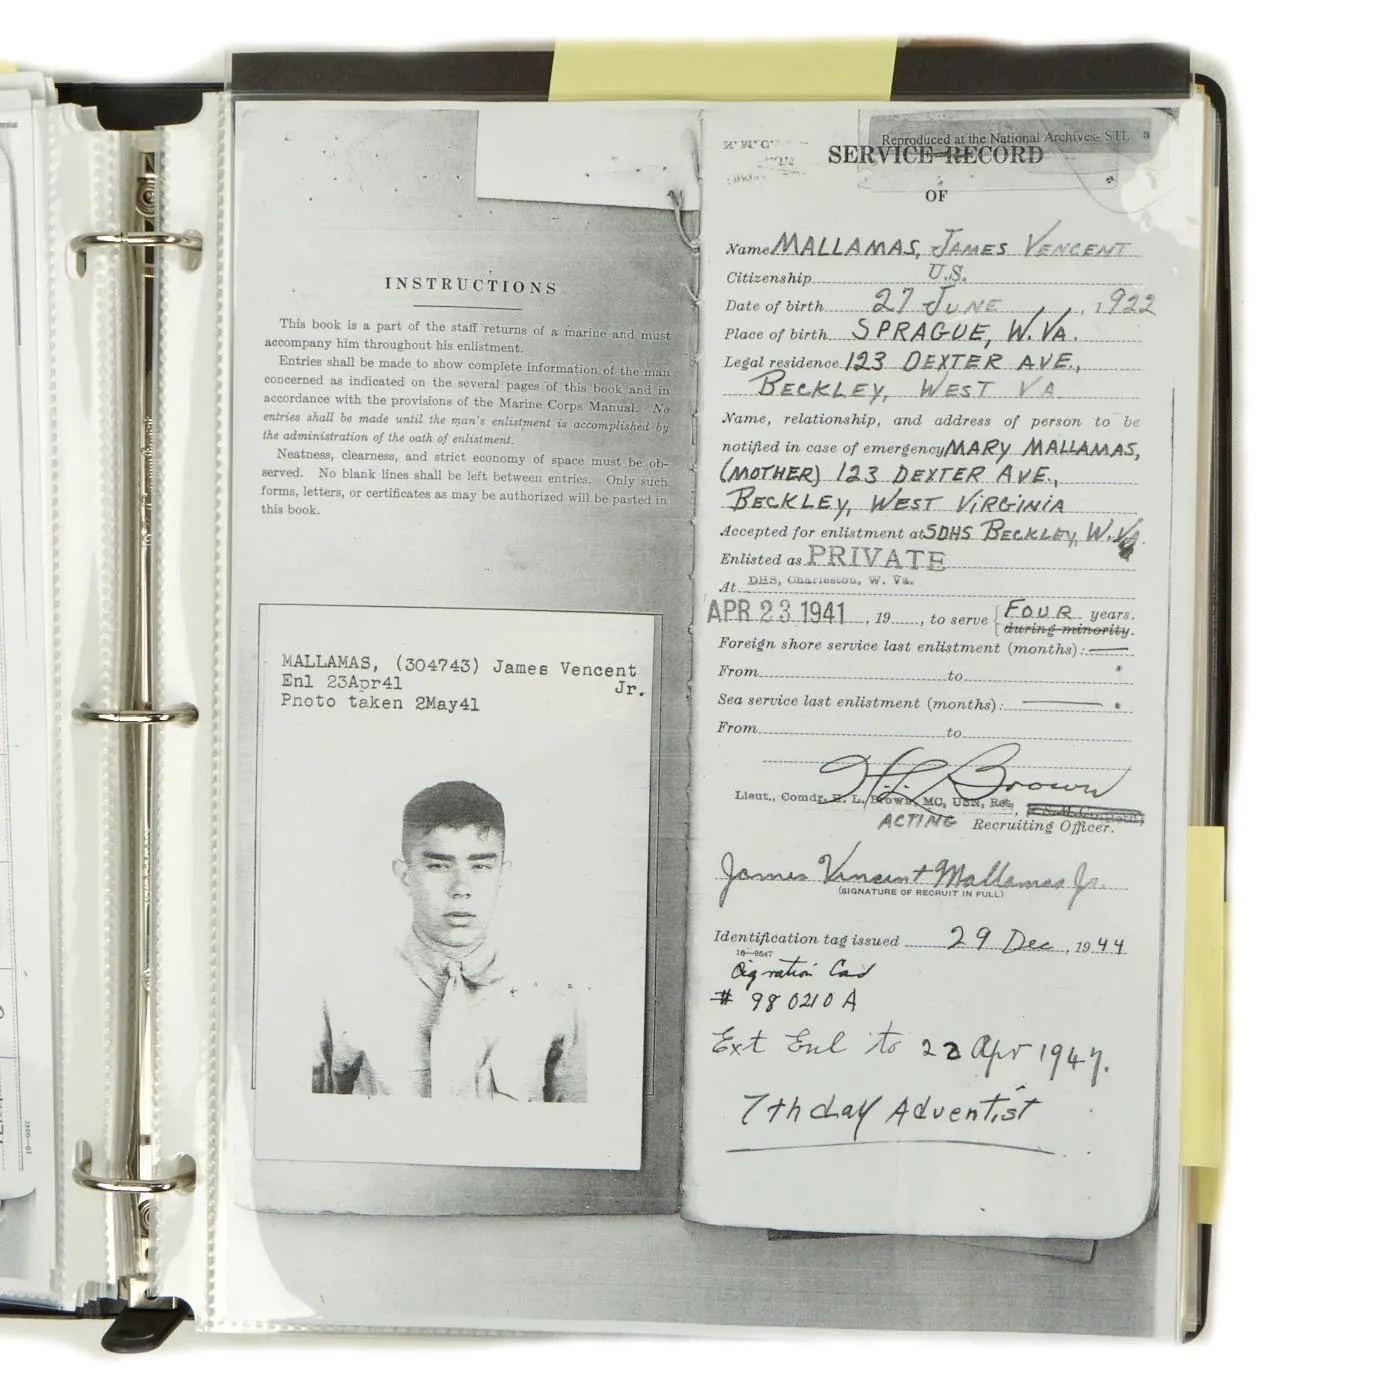 INSTRUCTIONS
This book is a part of the staff returns of a marine and must
accompany him throughout his enlistment.
Entries shall be made to show complete information of the man
concerned as indicated on the several pages of this book and in
accordance with the provisions of the Marine Corps Manual. No
entries shall be made until the man's enlistment is accomplished by
the administration of the oath of enlistment.
Neatness, clearness, and strict economy of space must be ob-
served. No blank lines shall be left between entries. Only such
forms, letters, or certificates as may be authorized will be pasted in
this book.
MALLAMAS, (304743) James Vencent
Enl 23Apr41 Jr.
Photo taken 2May41
N. M. C.
Reproduced at the National Archives- STL
SERVICE RECORD
OF
Name MALLAMAS, JAMES VENCENT
Citizenship U.S.
Date of birth 27 JUNE, 1922
Place of birth SPRAGUE, W. VA.
Legal residence 123 DEXTER AVE.,
BECKLEY, WEST VA
Name, relationship, and address of person to be
notified in case of emergency MARY MALLAMAS,
(MOTHER) 123 DEXTER AVE.,
BECKLEY, WEST VIRGINIA
Accepted for enlistment at SDHS BECKLEY, W. VA.
Enlisted as PRIVATE
At DHS, Charleston, W. Va.
APR 23 1941, 19, to serve { FOUR years.
during minority.
Foreign shore service last enlistment (months): —
From to
Sea service last enlistment (months): —
From to
H.L. Brown
Lieut., Comdr. H. L. Brown, MC, USN, Ret.,
ACTING Recruiting Officer.
James Vincent Mallamas Jr.
(SIGNATURE OF RECRUIT IN FULL)
Identification tag issued 29 Dec, 1944
16—9547
# 980210 A
Ext Enl to 22 Apr 1947.
7th day Adventist